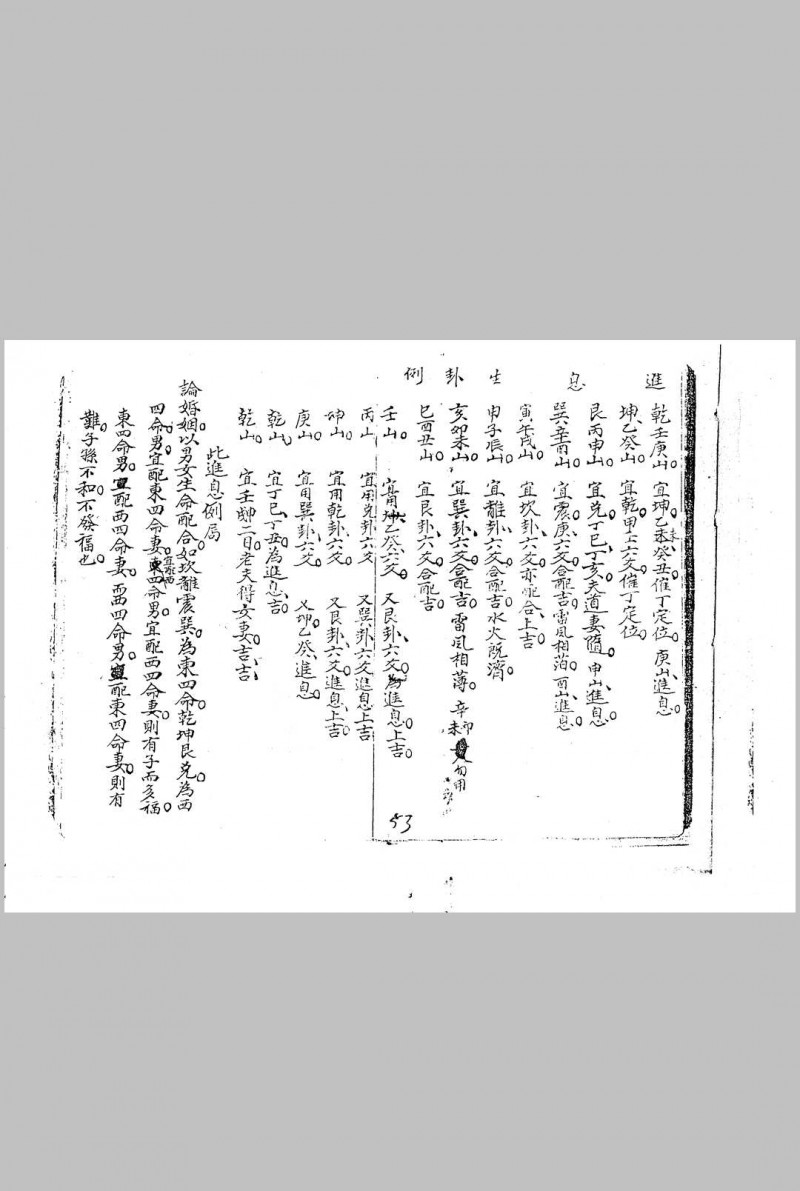 進息生卦例
乾壬庚山。宜坤乙未、癸丑催丁定位。庚山、進息。
坤、乙癸山。宜乾甲上六爻催丁定位。
艮丙申山、宜兌丁巳、丁亥夫道妻隨。申山、進息。
巽辛酉山、宜震庚六爻合配吉雷風相泊。酉山、進息。
寅午戌山。宜坎卦六爻亦配合上吉
申子辰山。宜離卦六爻合配吉水火既濟。
亥卯未山。宜巽卦六爻合配吉。雷風相薄。辛卯未勿用
巳酉丑山。宜艮卦六爻合配吉。
壬山。坤乙癸六爻。又艮卦六爻為進息。上吉。
丙山宜用兌卦六爻又巽卦六爻進息上吉
坤山宜用乾卦六爻。又艮卦六爻進息、上吉
庚山。宜用巽卦六爻。又坤乙癸、進息。
乾山、宜丁巳、丁丑為進息。吉
乾山。宜壬二日。老夫得女妻。吉吉
此進息例局
論婚姻。以男女生命配合。如坎離震巽為東四命。乾坤艮兌為西
四命男。宜配東四命妻。東四命男宜配西四命妻。則有子而多福。
東四命男。宜配西四命妻。西四命男。宜配東四命妻。則有
難。子孫不和不發福也。
53